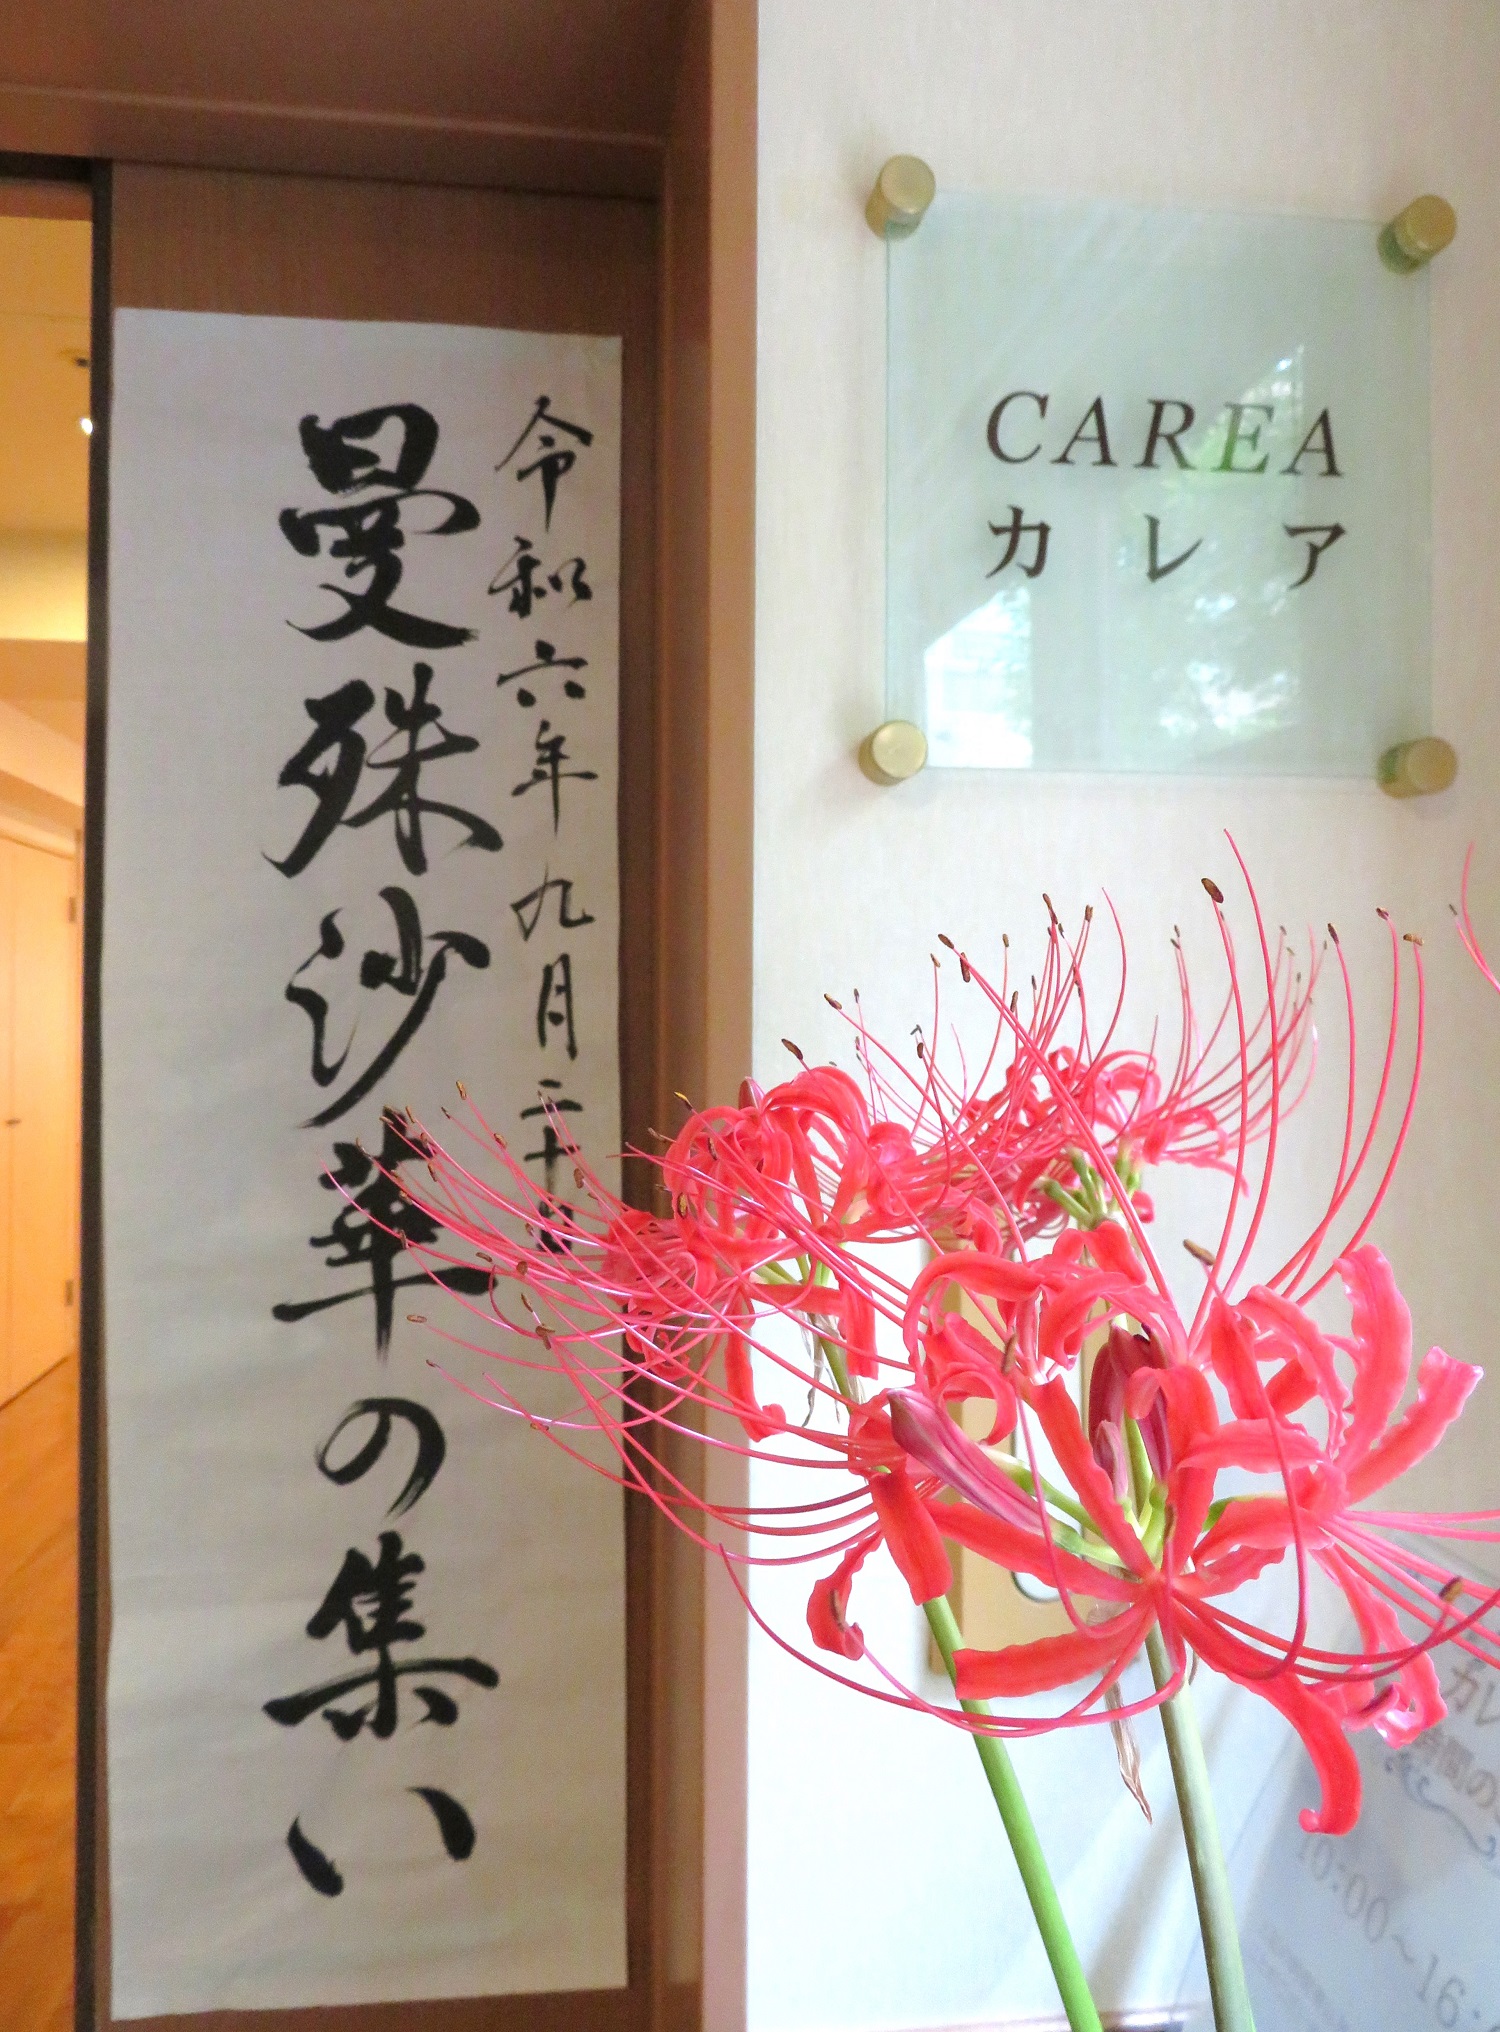 令和六年九月二十日
曼殊沙華の集い
CAREA
カレア
カレ
時間の
10:00～16: